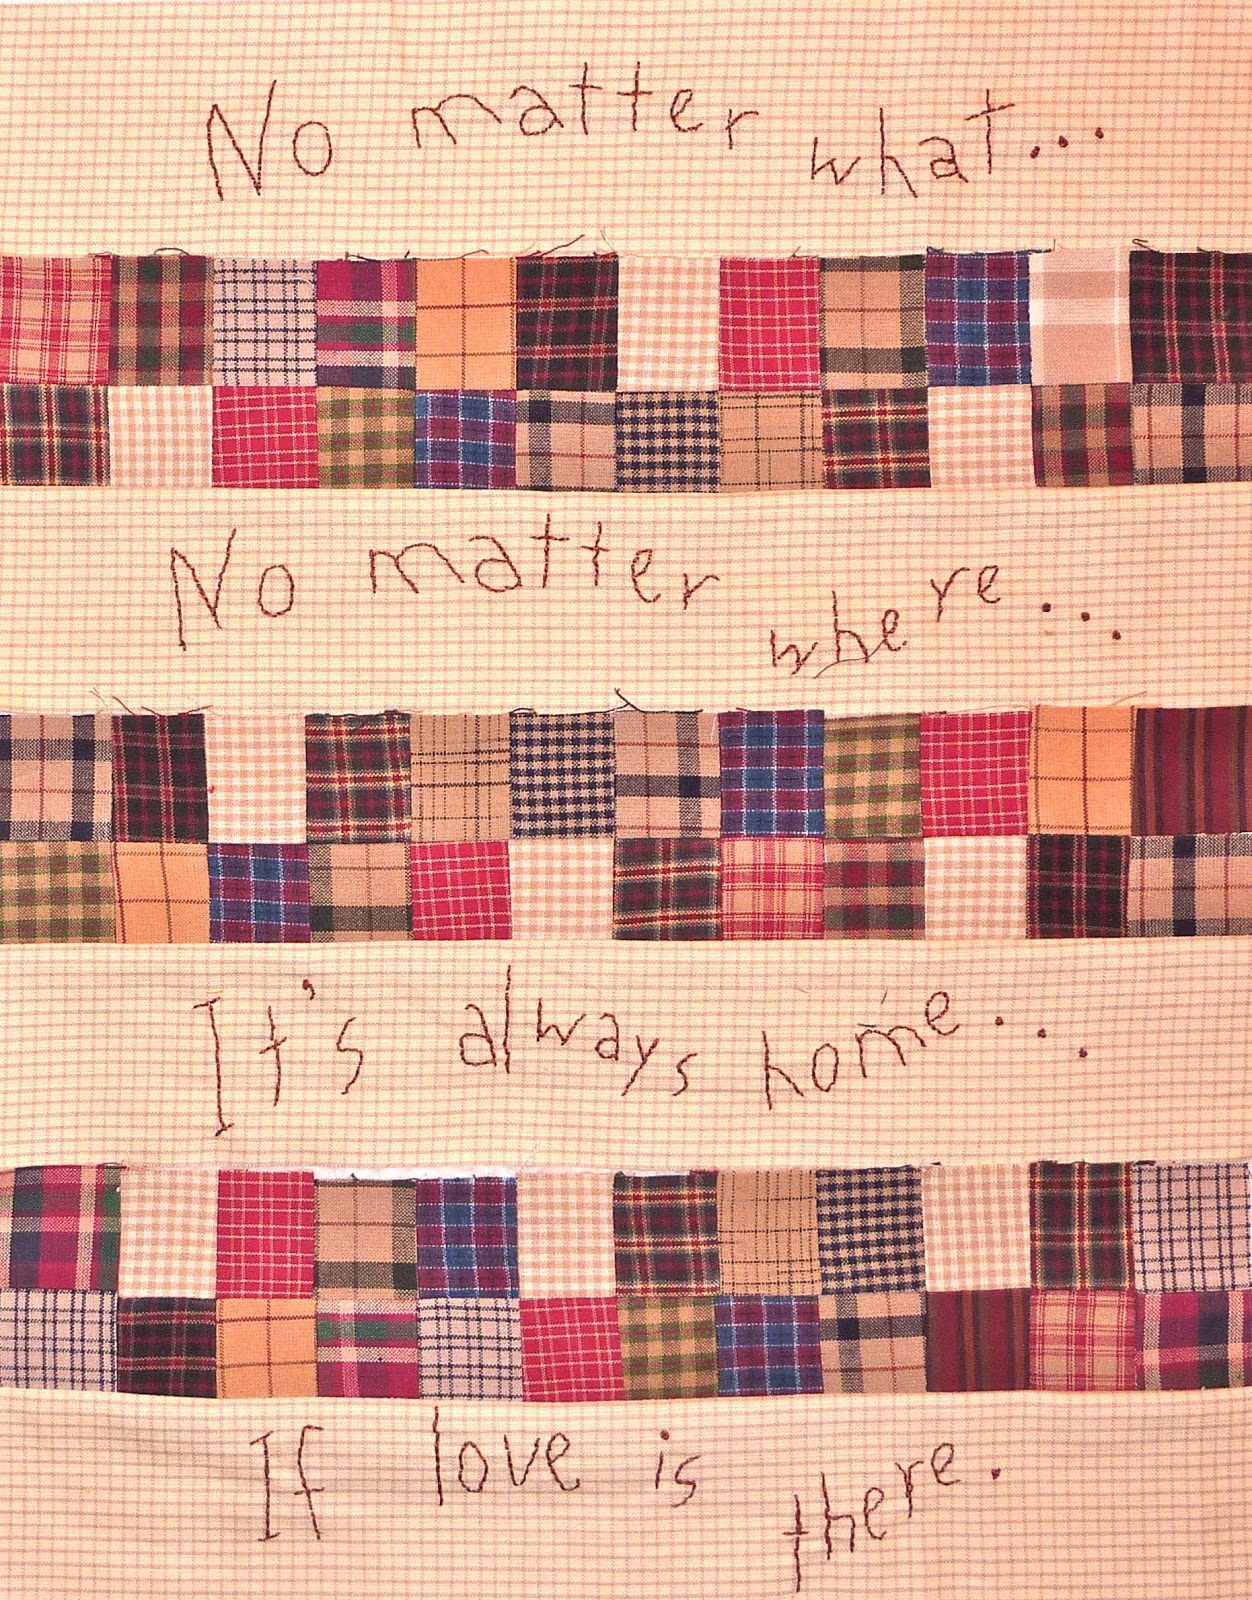 No matter what...
No matter where...
It's always home...
If love is there.